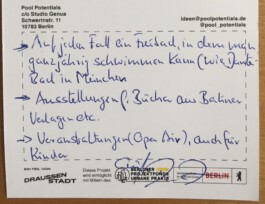 Pool Potentials
c/o Studio Genua
Schwerinstr. 11
10783 Berlin
ideen@poolpotentials.de
@pool_potentials
→ Auf jeden Fall ein Freibad, in dem man
ganzjährig schwimmen kann (wie Dante-
Bad in München
→ Ausstellungen (, Bücher aus Berliner
Verlagen etc.
→ Veranstaltungen (Open Air), auch für
Kinder
DRAUSSEN
STADT
Dieses Projekt
wird ermöglicht
mit Mitteln des
BERLINER
PROJEKTFONDS
URBANE PRAXIS
BERLIN